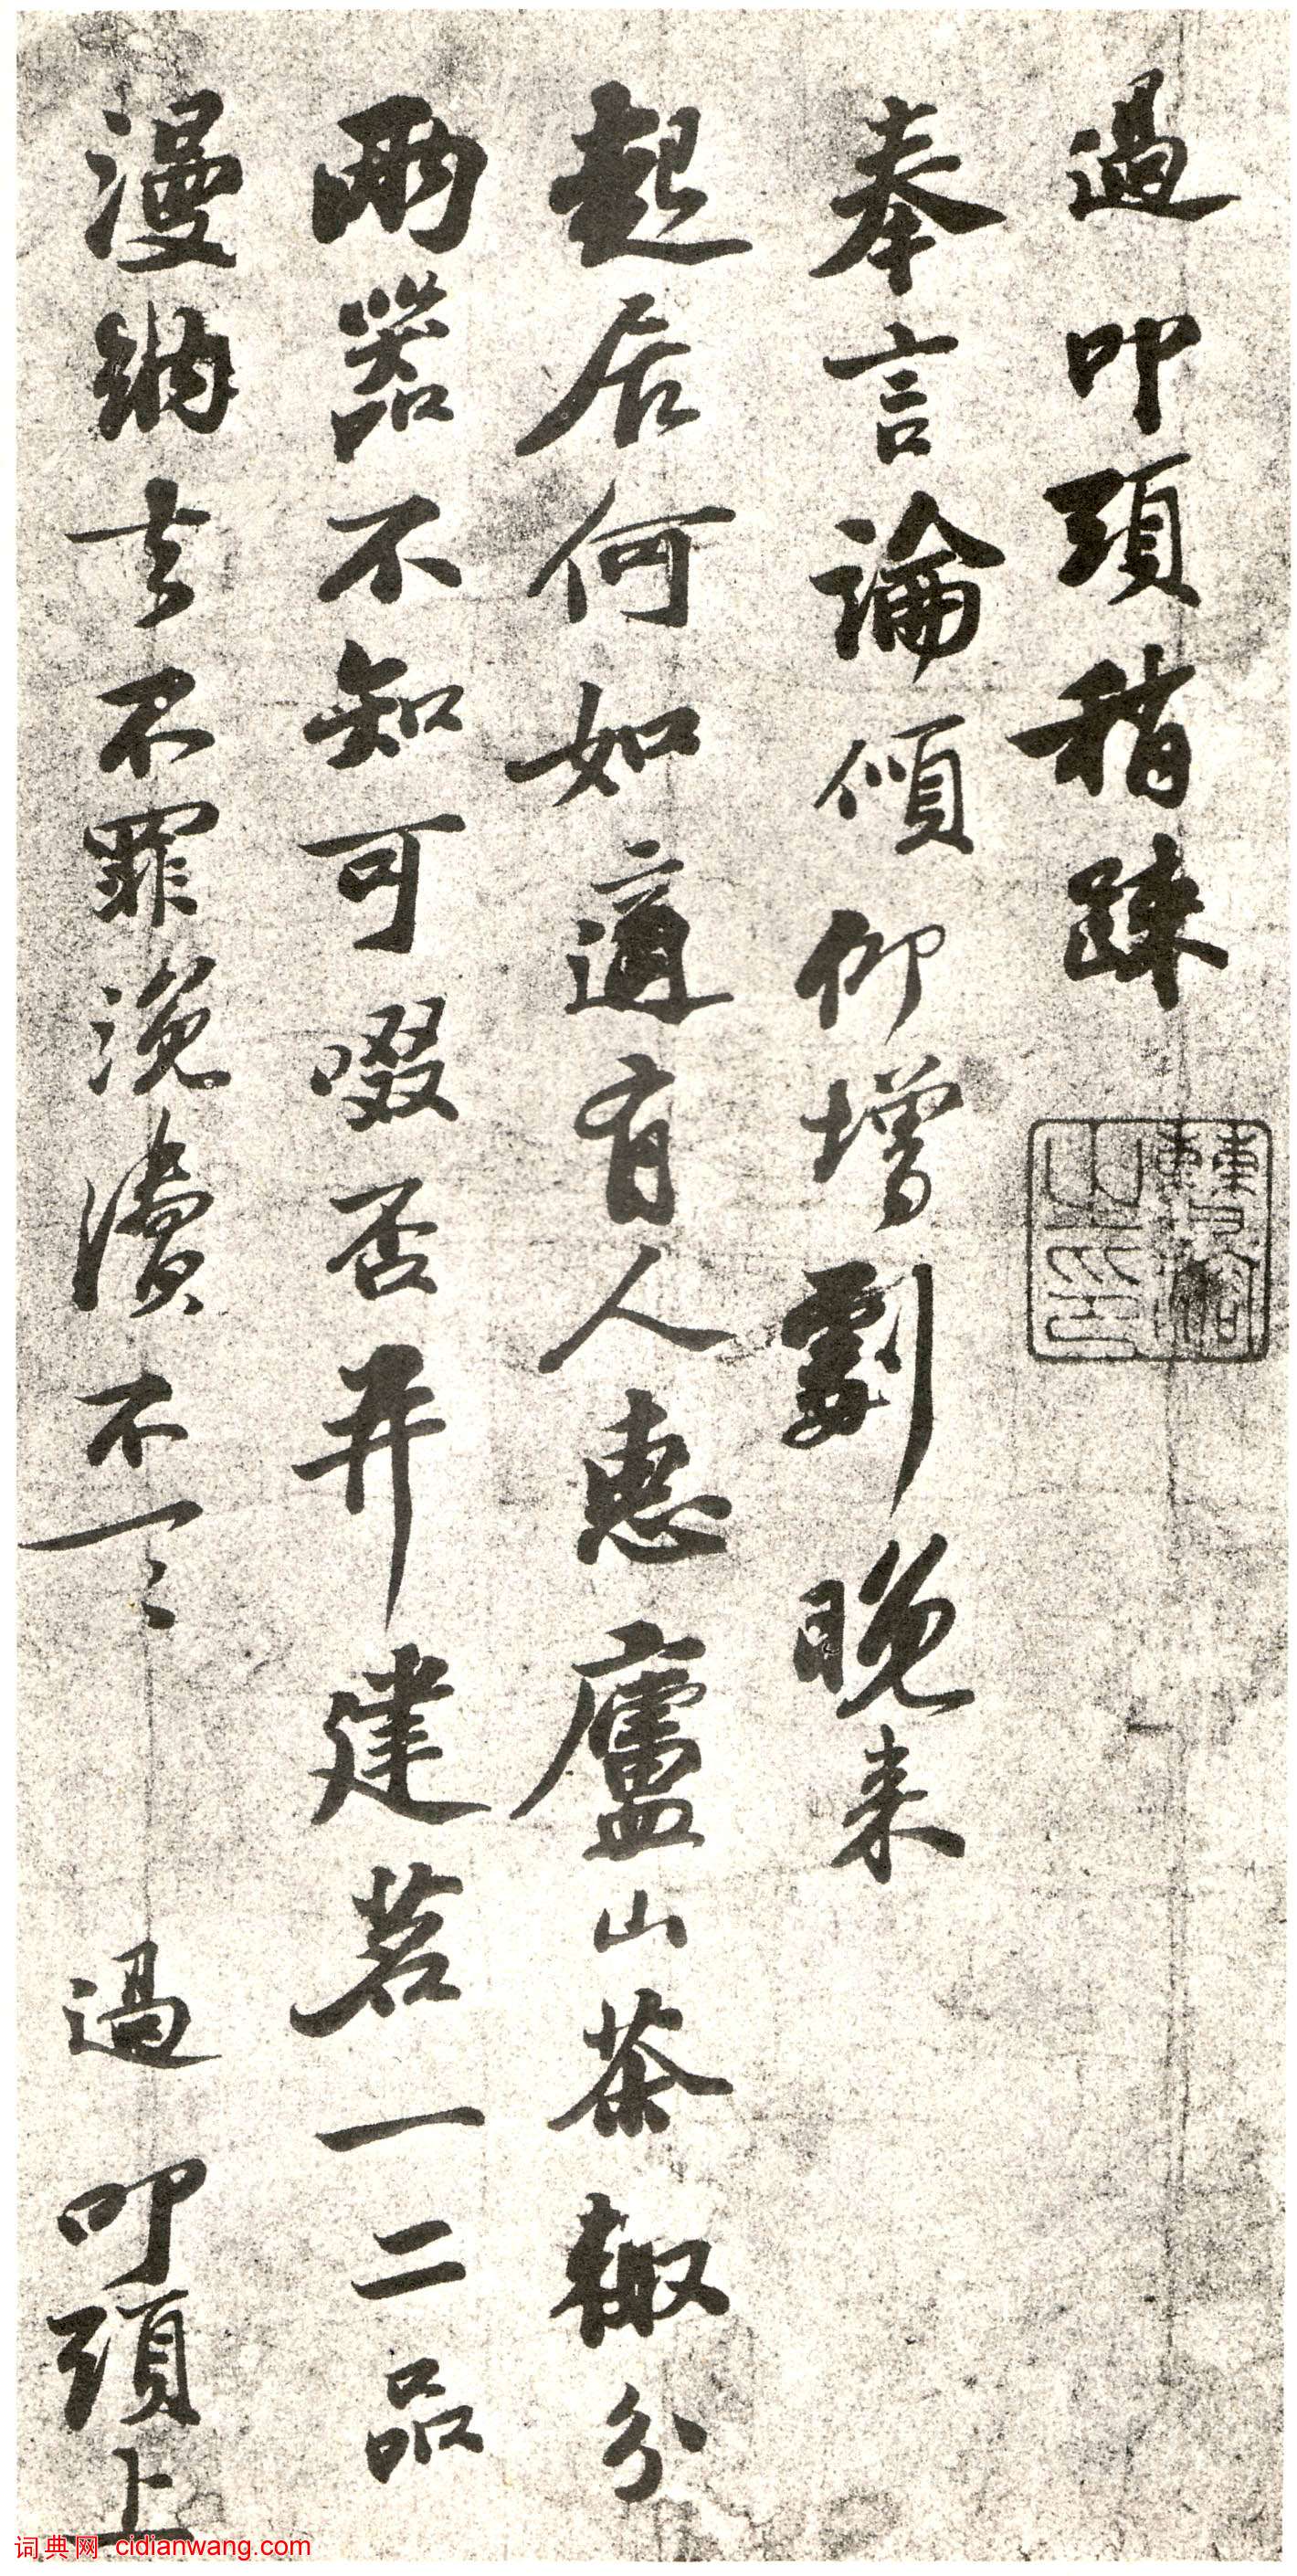 過叩頭稍踈
奉言論傾仰增劇晚来
起居何如適有人惠廬山茶輙分
兩器不知可啜否并建茗一二品
漫納去不罪浼瀆不一一 過叩頭上
词典网 cidianwang.com